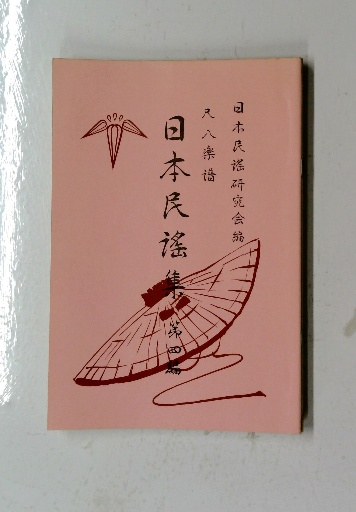 日本民謡研究会編
尺八楽譜
日本民謡集 第四編